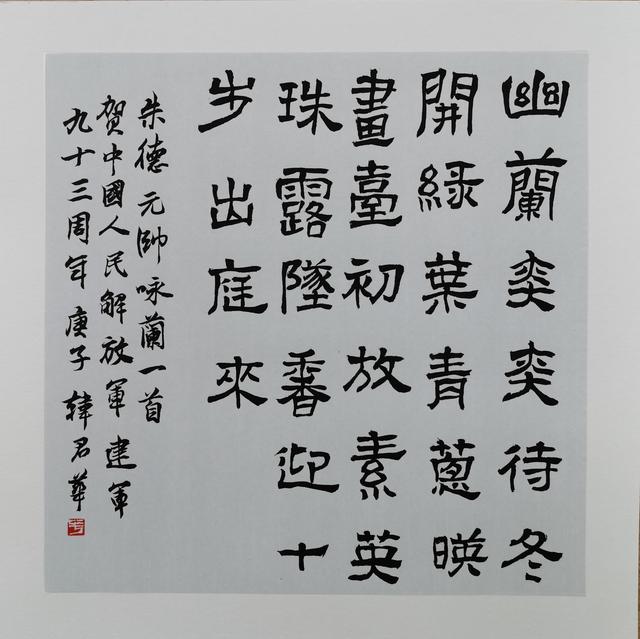 幽蘭奕奕待冬
開綠葉青蔥映
畫臺初放素英
珠露墜香迎十
步出庭來
朱德元帥咏蘭一首
賀中國人民解放軍建軍
九十三周年 庚子 韓君華